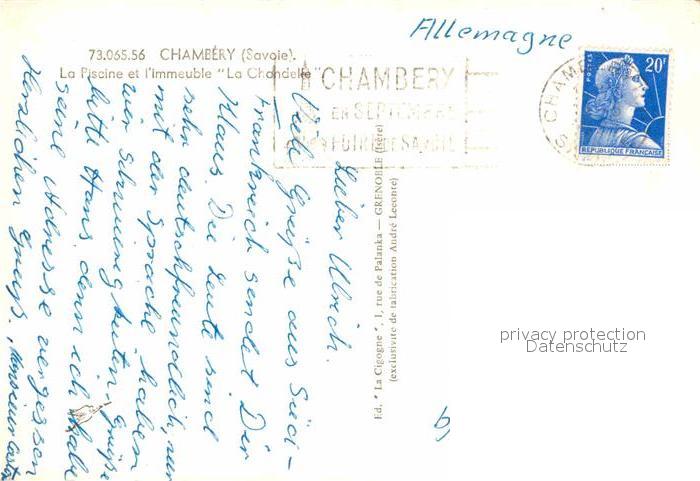 Allemagne
73.065.56 CHAMBÉRY (Savoie).
La Piscine et l'immeuble "La Chandelle"
CHAMBERY
EN SEPTEMBRE
FOIRE DE SAVOIE
CHAMB
POSTES
20F
REPUBLIQUE FRANÇAISE
Lieber Ulrich.
Viele Grüße aus Süd-
Frankreich sendet Dir
Klaus. Die Leute sind
sehr deutschfreundlich, nur
mit der Sprache haben
wir Schwierigkeiten. Grüße
bitte Hans, denn ich habe
seine Adresse vergessen
Herzlichen Gruß, Monsieur
Ed. "La Cigogne", 1, rue de Palanka — GRENOBLE (Isère)
(exclusivité de fabrication André Leconte)
privacy protection
Datenschutz